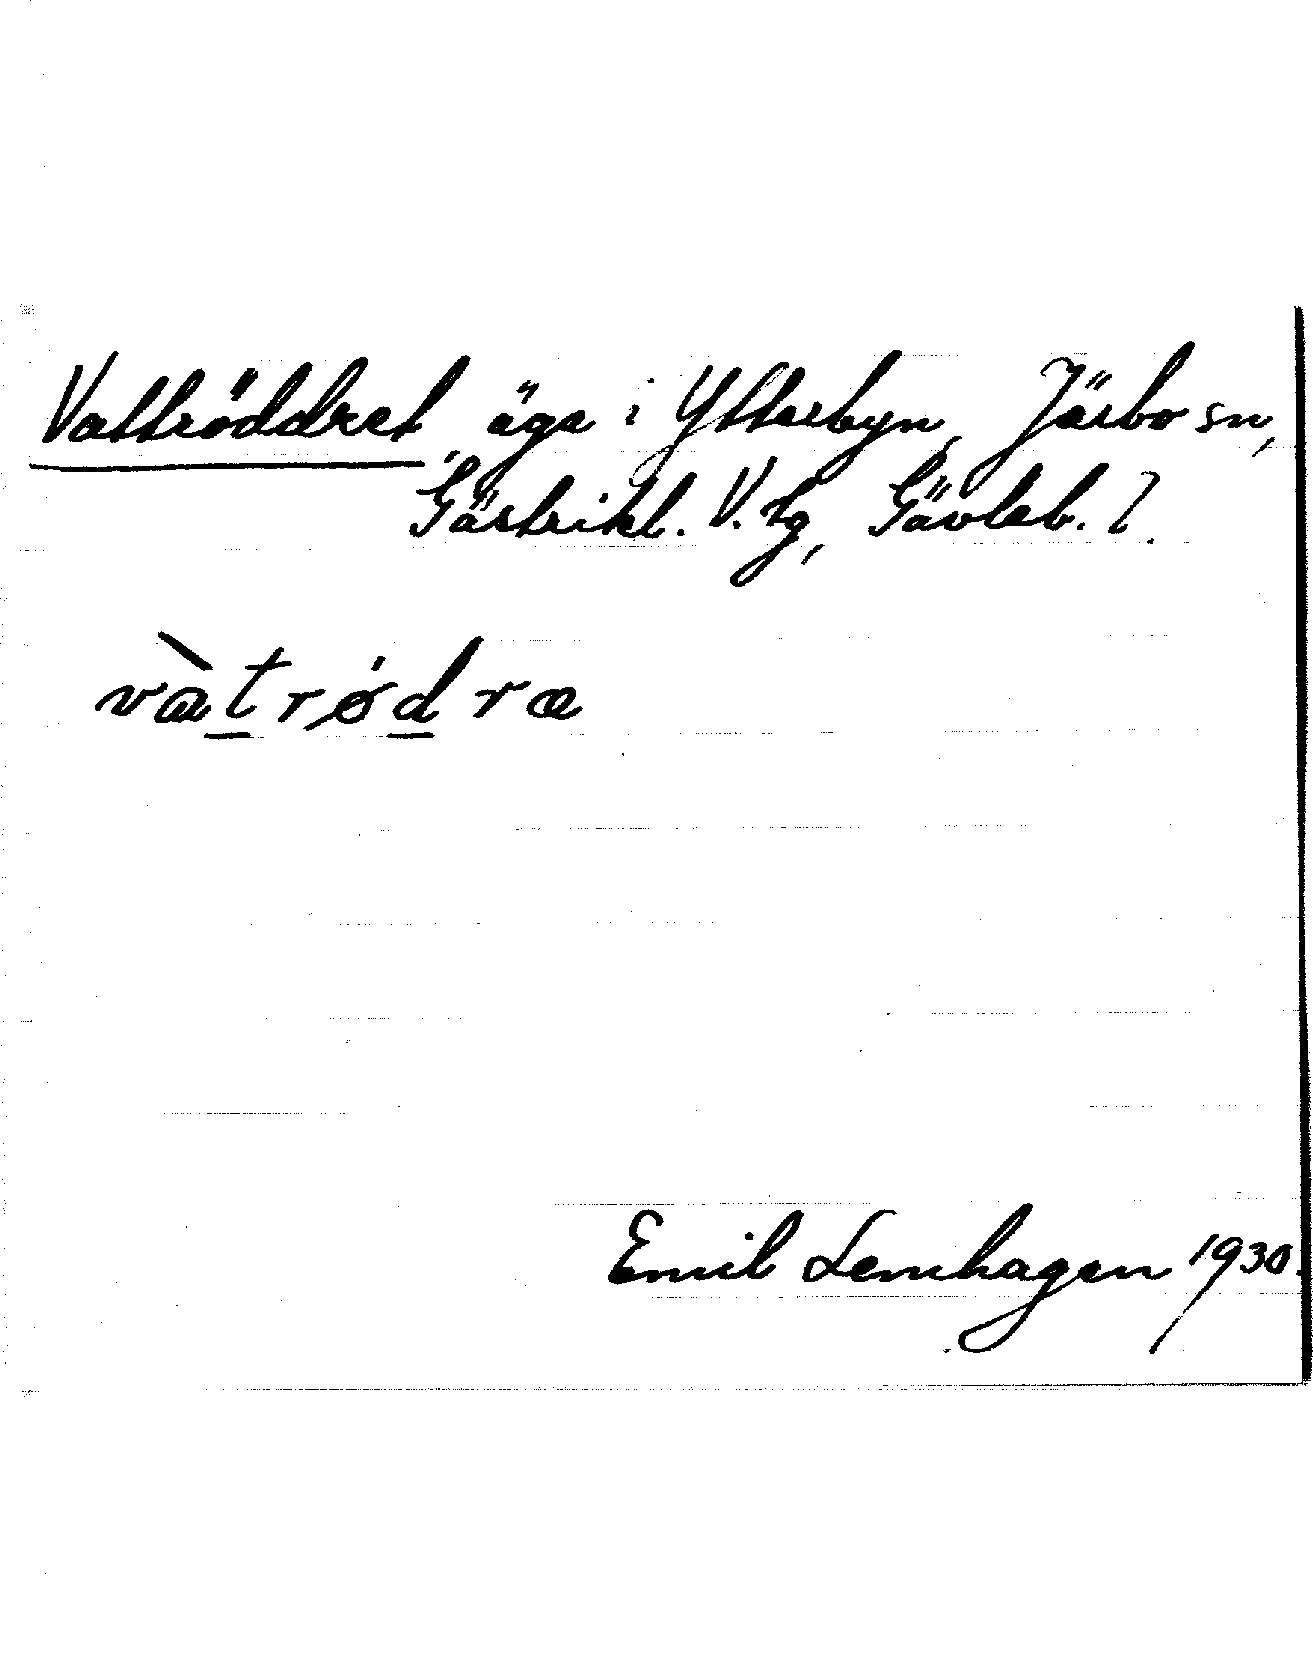 Vattröddret, äga i Ytterbyn, Järbo sn,
Gästrikl. V. tg, Gävleb. l.
vàtrødra
Emil Lemhagen 1930.